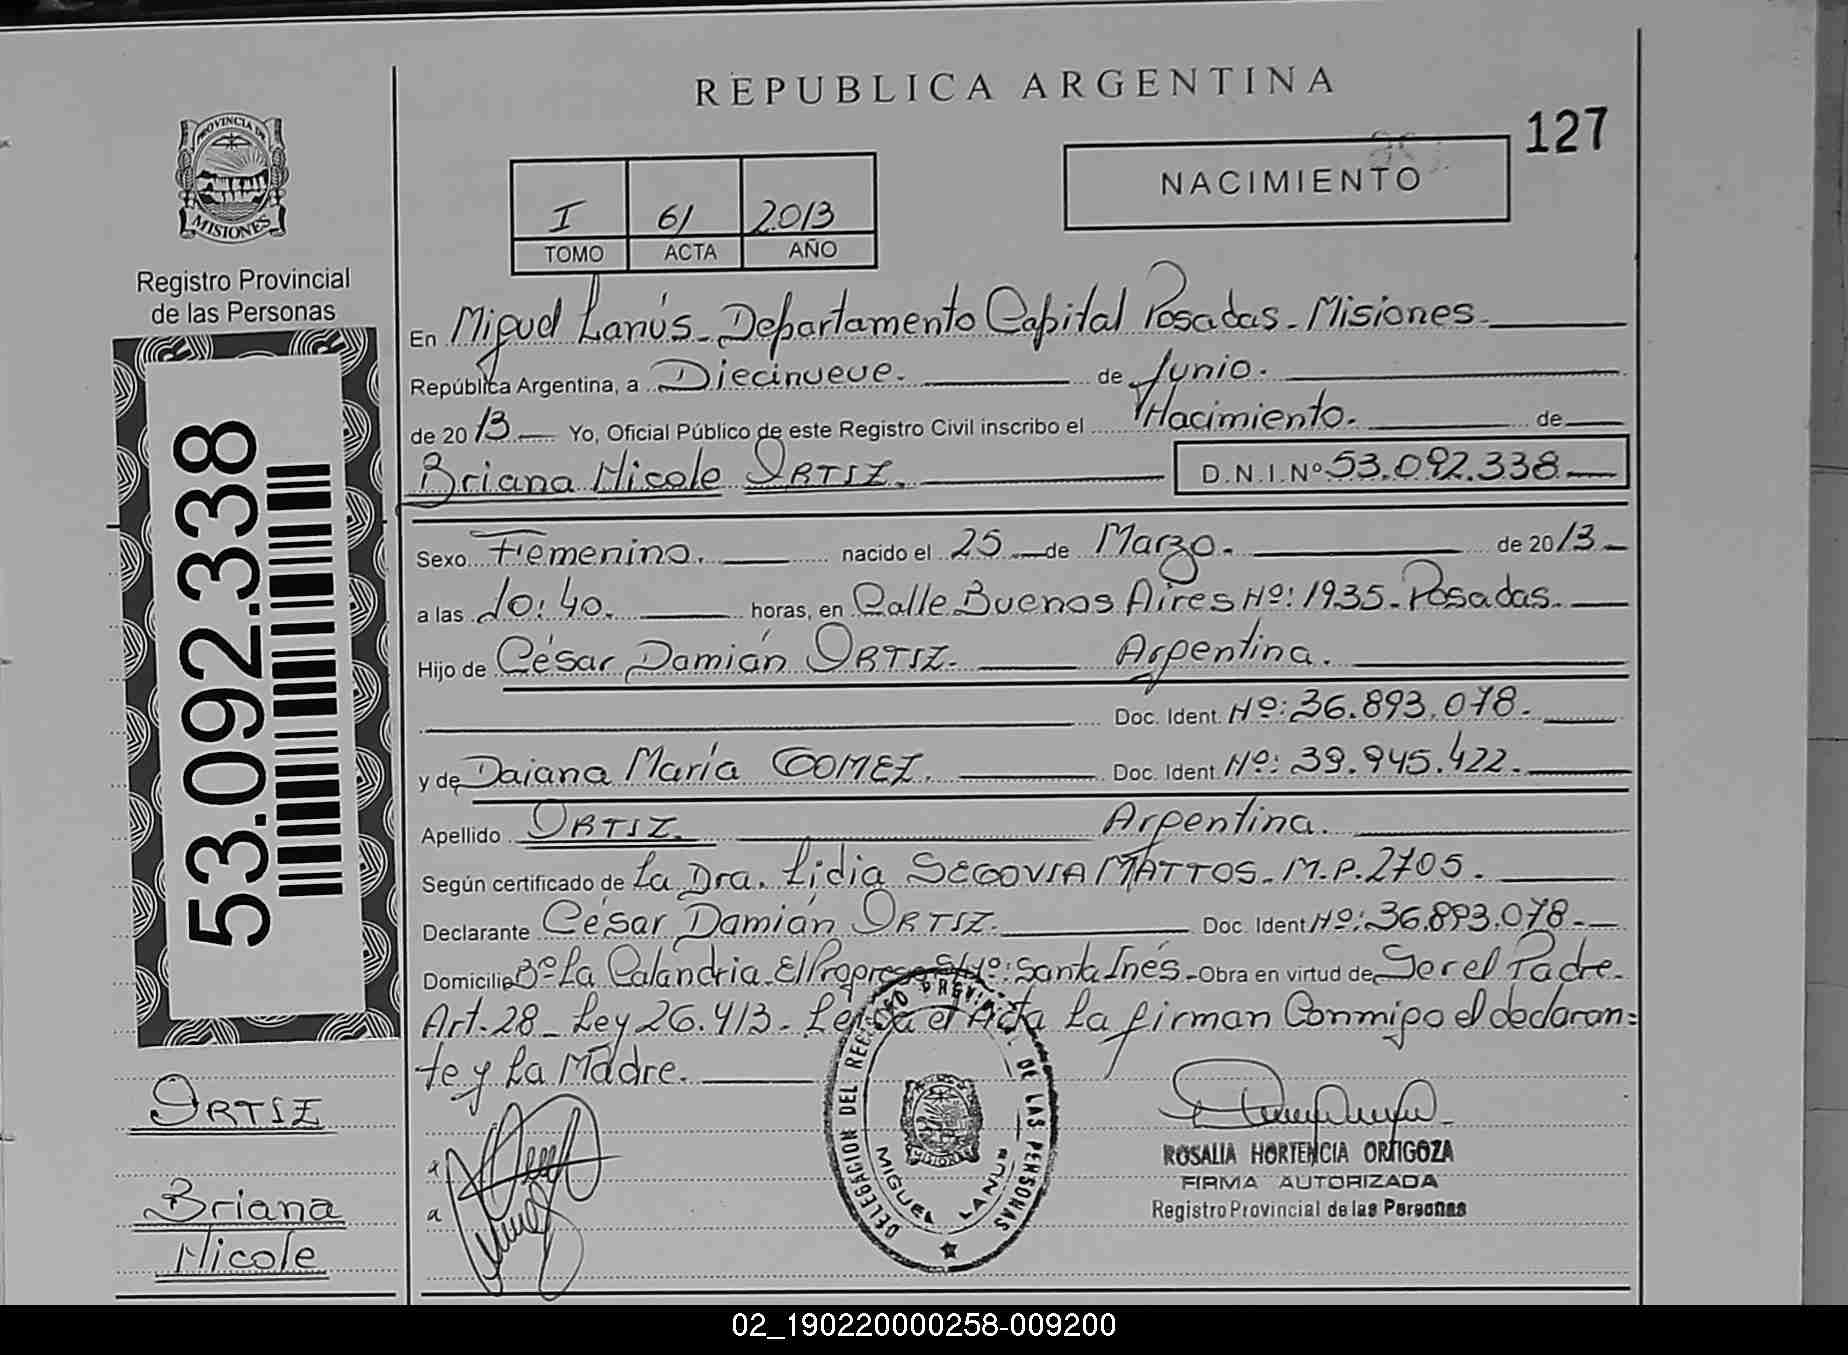 REPUBLICA ARGENTINA
127
NACIMIENTO
I 61 2013
TOMO ACTA AÑO
PROVINCIA DE
MISIONES
Registro Provincial
de las Personas
53.092.338
En Miguel Lanús. Departamento Capital Posadas. Misiones.
República Argentina, a Diecinueve. de Junio.
de 2013 Yo, Oficial Público de este Registro Civil inscribo el Nacimiento. de
Briana Nicole ORTIZ. D.N.I.Nº 53.092.338
Sexo Femenino. nacido el 25 de Marzo. de 2013
a las 10:40. horas, en Calle Buenos Aires Nº: 1935. Posadas.
Hijo de César Damián ORTIZ. Argentina.
Doc. Ident. Nº: 36.893.078.
y de Daiana María GOMEZ. Doc. Ident. Nº: 39.945.422.
Apellido ORTIZ. Argentina.
Según certificado de La Dra. Lidia SEGOVIA MATTOS. M.P. 2705.
Declarante César Damián ORTIZ. Doc. Ident Nº: 36.893.078.
Domicilio Bº La Calandria. El Progreso S/Nº: Santa Inés. Obra en virtud de Ser el Padre.
Art. 28 - Ley 26.413. Leída el Acta La firman Conmigo el declaran=
te y La Madre.
ORTIZ
Briana
Nicole
DELEGACION DEL REGISTRO PROVINCIAL DE LAS PERSONAS
MIGUEL LANUS
MISIONES
ROSALIA HORTENCIA ORTIGOZA
FIRMA AUTORIZADA
Registro Provincial de las Personas
02_190220000258-009200